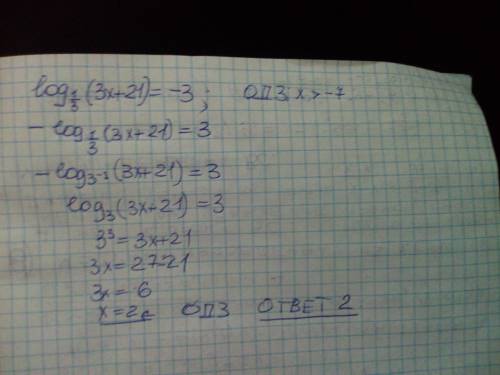 log_{1/3}(3x+21)=-3; ОПЗ: x>-7
-log_{1/3}(3x+21)=3
-log_{3^{-1}}(3x+21)=3
log_3(3x+21)=3
3^3=3x+21
3x=27-21
3x=6
x=2 ∈ ОПЗ ОТВЕТ 2